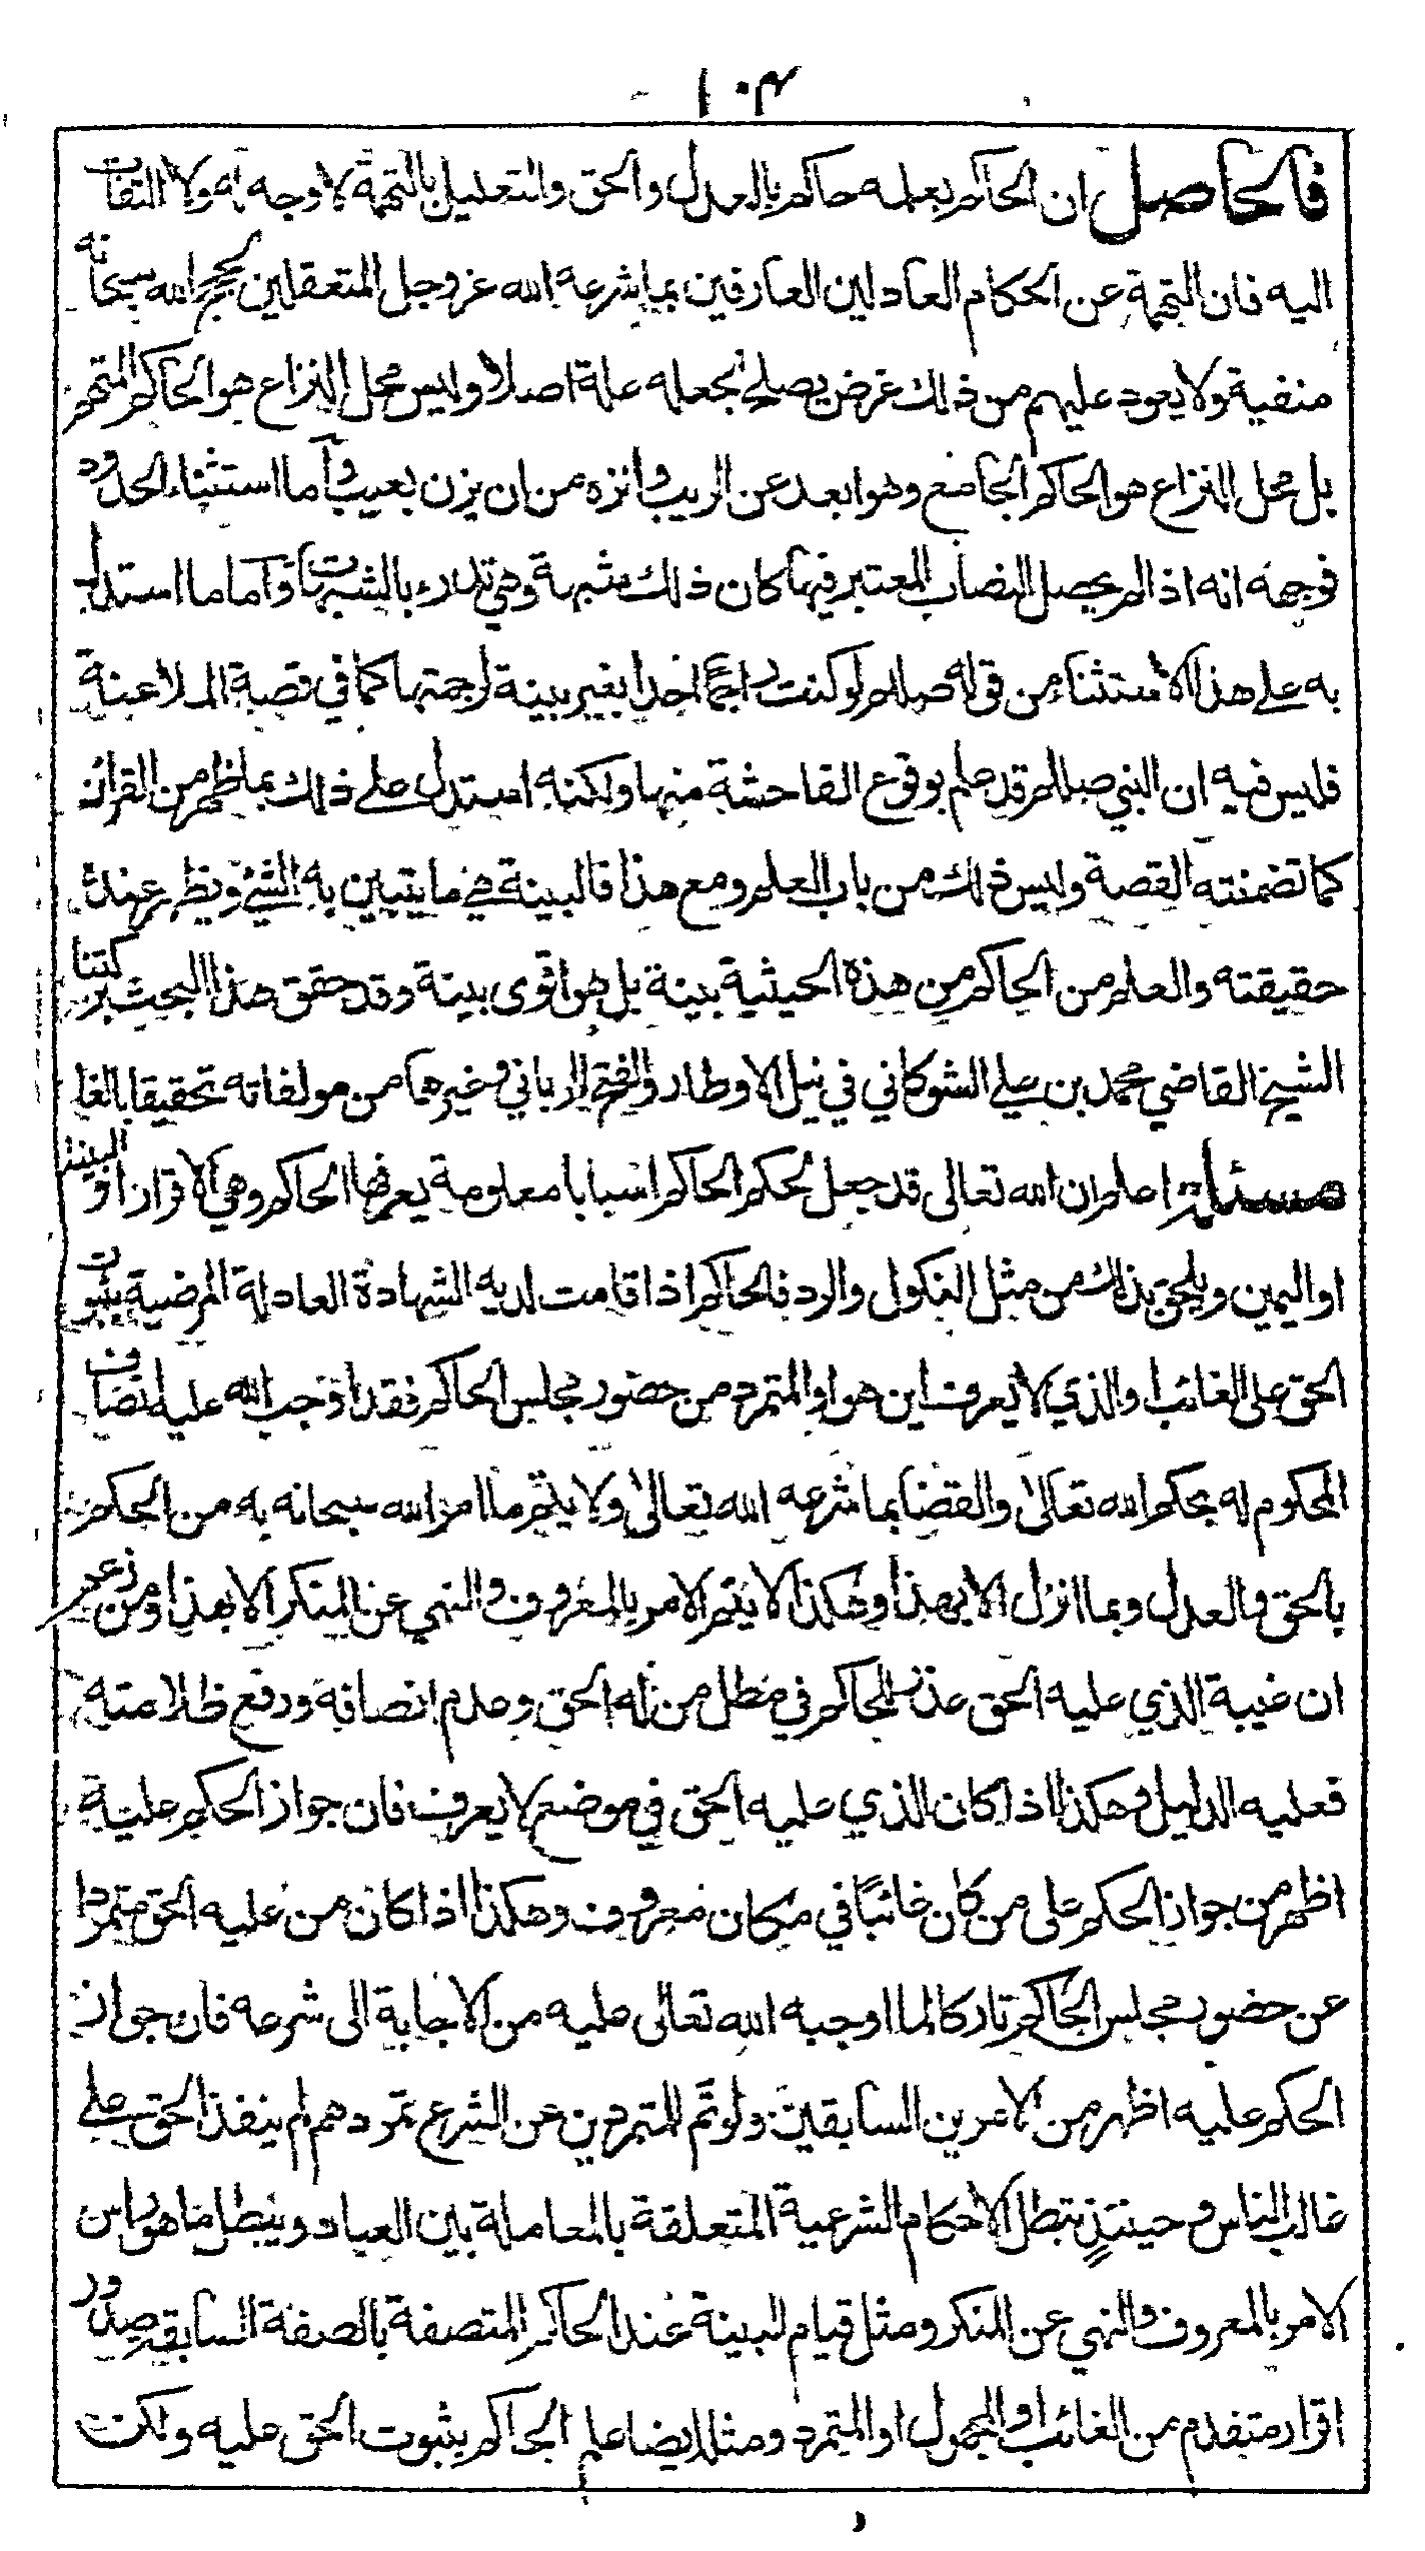 ١٠٤
فالحاصل ان الحاكم بعلمه حاكم بالعدل والحق والتعليل بالتهمة لا وجه له ولا التفات
اليه فان التهمة عن الحكام العادلين العارفين بما شرعه الله عز وجل المتعقلين لحجج الله سبحانه
منفية ولا يعود عليهم من ذلك غرض يصلح لجعله علة اصلا وليس محل النزاع هو الحاكم المتهم
بل محل النزاع هو الحاكم الجامع وهو ابعد عن الريب وانزه من ان يزن بعيب وأما استثناء الحدود
فوجهه انه اذا لم يحصل النصاب المعتبر فيها كان ذلك شبهة وهي تدرء بالشبهات وأما ما استدل
به على هذا الاستثناء من قوله صللم لو كنت راجمًا احدا بغير بينة لرجمتها كما في قصة الملاعنة
فليس فيه ان النبي صللم قد علم بوقوع الفاحشة منها ولكنه استدل على ذلك بما ظهر من القرائن
كما تضمنته القصة وليس ذلك من باب العلم ومع هذا فالبينة هي ما يتبين به الشيء ويظهر عنده
حقيقته والعلم من الحاكم من هذه الحيثية بينة بل هو اقوى بينة وقد حقق هذا البحث بركتنا
الشيخ القاضي محمد بن علي الشوكاني في نيل الاوطار والفتح الرباني وغيرهما من مولفاته تحقيقا بالغا
مسئلة اعلم ان الله تعالى قد جعل لحكم الحاكم اسبابا معلومة يعرفها الحاكم وهي الاقرار او البينة
او اليمين ويلحق بذلك من مثل النكول والرد فالحاكم اذا قامت لديه الشهادة العادلة المرضية بثبوت
الحق على الغائب او الذي لا يعرف اين هو او المتمرد من حضور مجلس الحاكم فقد اوجب الله عليه انصاف
المحكوم له بحكم الله تعالى والقضا بما شرعه الله تعالى ولا يتم ما امر الله سبحانه به من الحكم
بالحق والعدل وبما انزل الا بهذا وهكذا لا يتم الامر بالمعروف والنهي عن المنكر الا بهذا ومن زعم
ان غيبة الذي عليه الحق عذر للحاكم في مطل من له الحق وعدم انصافه ورفع ظلامته
فعليه الدليل وهكذا اذا كان الذي عليه الحق في موضع لا يعرف فان جواز الحكم عليه
اظهر من جواز الحكم على من كان غائبًا في مكان معروف وهكذا اذا كان من عليه الحق متمردا
عن حضور مجلس الحاكم تاركا لما اوجبه الله تعالى عليه من الاجابة الى شرعه فان جواز
الحكم عليه اظهر من الامرين السابقين ولو تم للمتمردين عن الشرع تمردهم لم ينفذ الحق على
غالب الناس وحينئذٍ تبطل الاحكام الشرعية المتعلقة بالمعاملة بين العباد ويبطل ما هو راس
الامر بالمعروف والنهي عن المنكر ومثل قيام البينة عند الحاكم المتصفة بالصفة السابقة صدور
اقرار متقدم من الغائب او المجهول او المتمرد ومثله ايضا علم الحاكم بثبوت الحق عليه ولكن